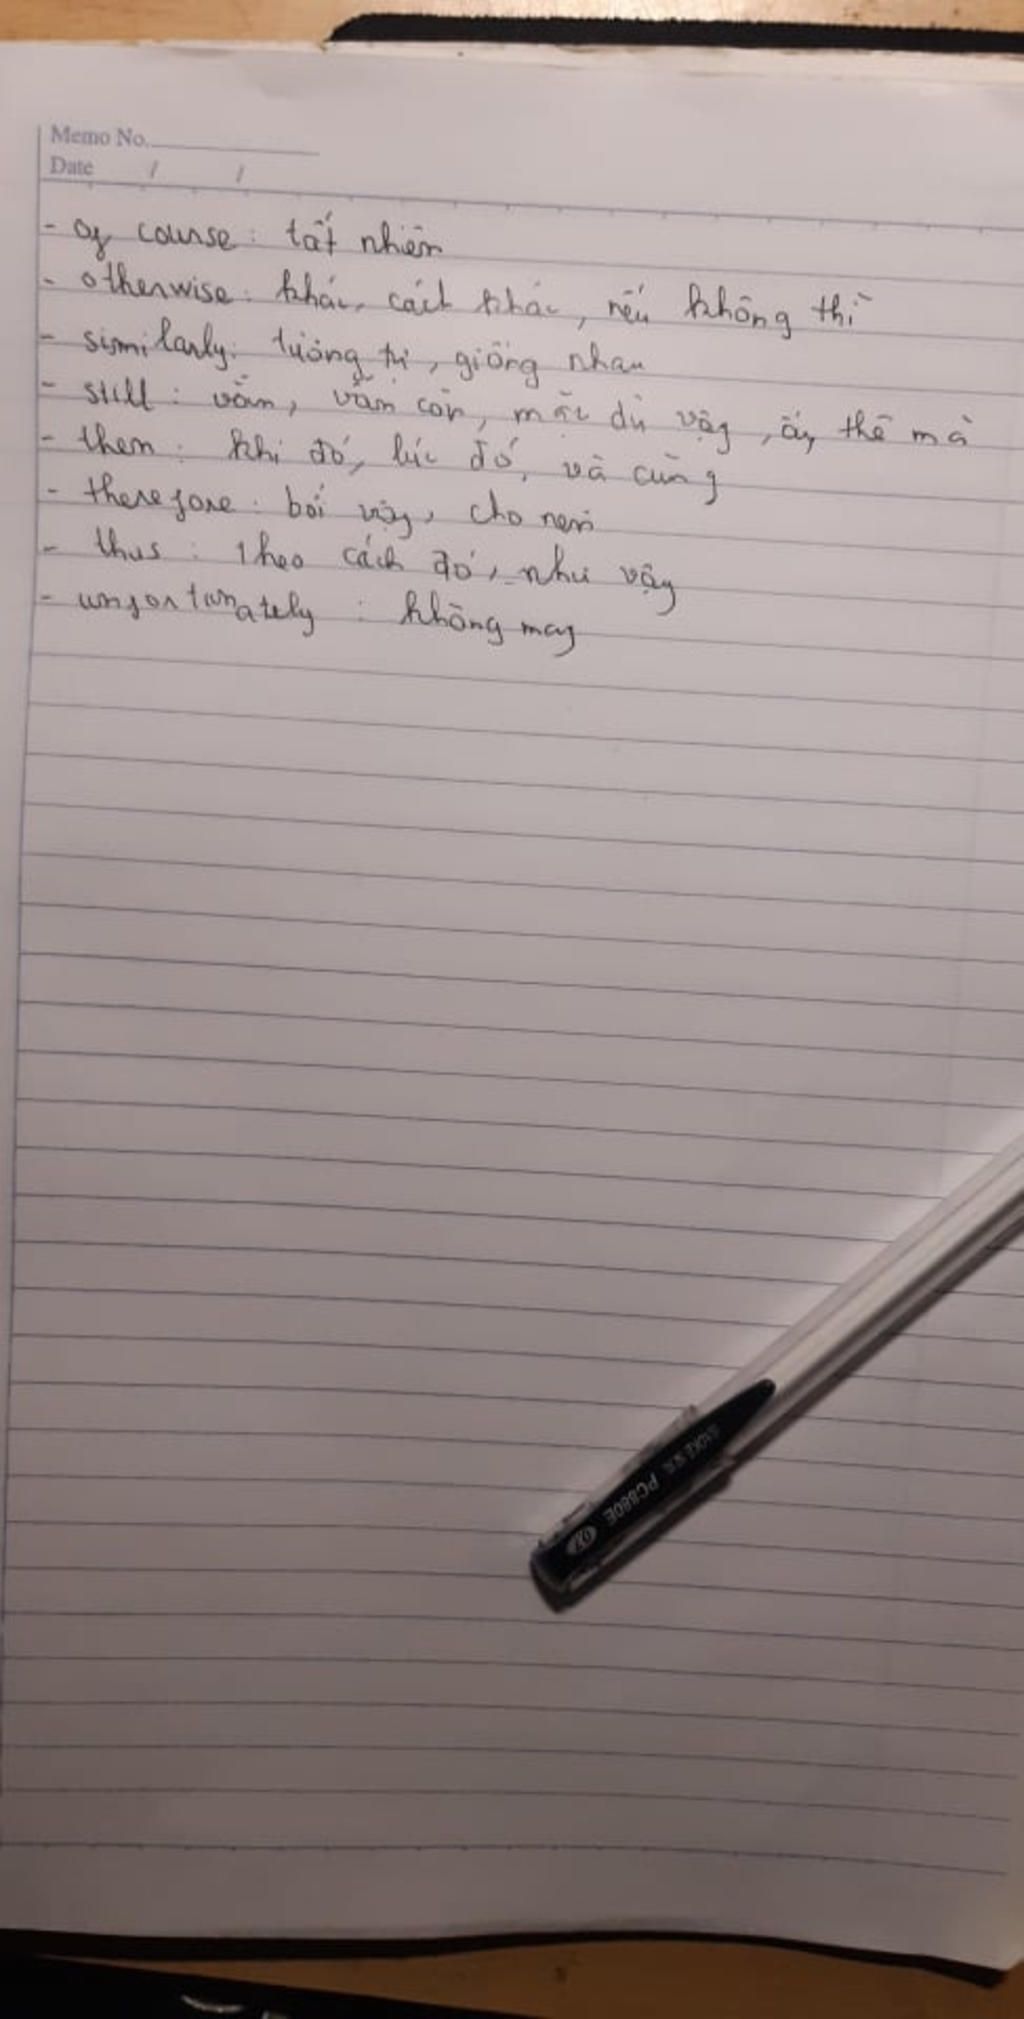 Memo No.
Date / /
- of course : tất nhiên
- otherwise : khác, cách khác, nếu không thì
- similarly : tương tự, giống nhau
- still : vẫn, vẫn còn, mặc dù vậy, ấy thế mà
- then : khi đó, lúc đó, và cũng
- therefore : bởi vậy, cho nên
- thus : theo cách đó, như vậy
- unfortunately : không may
PC880E
0.7